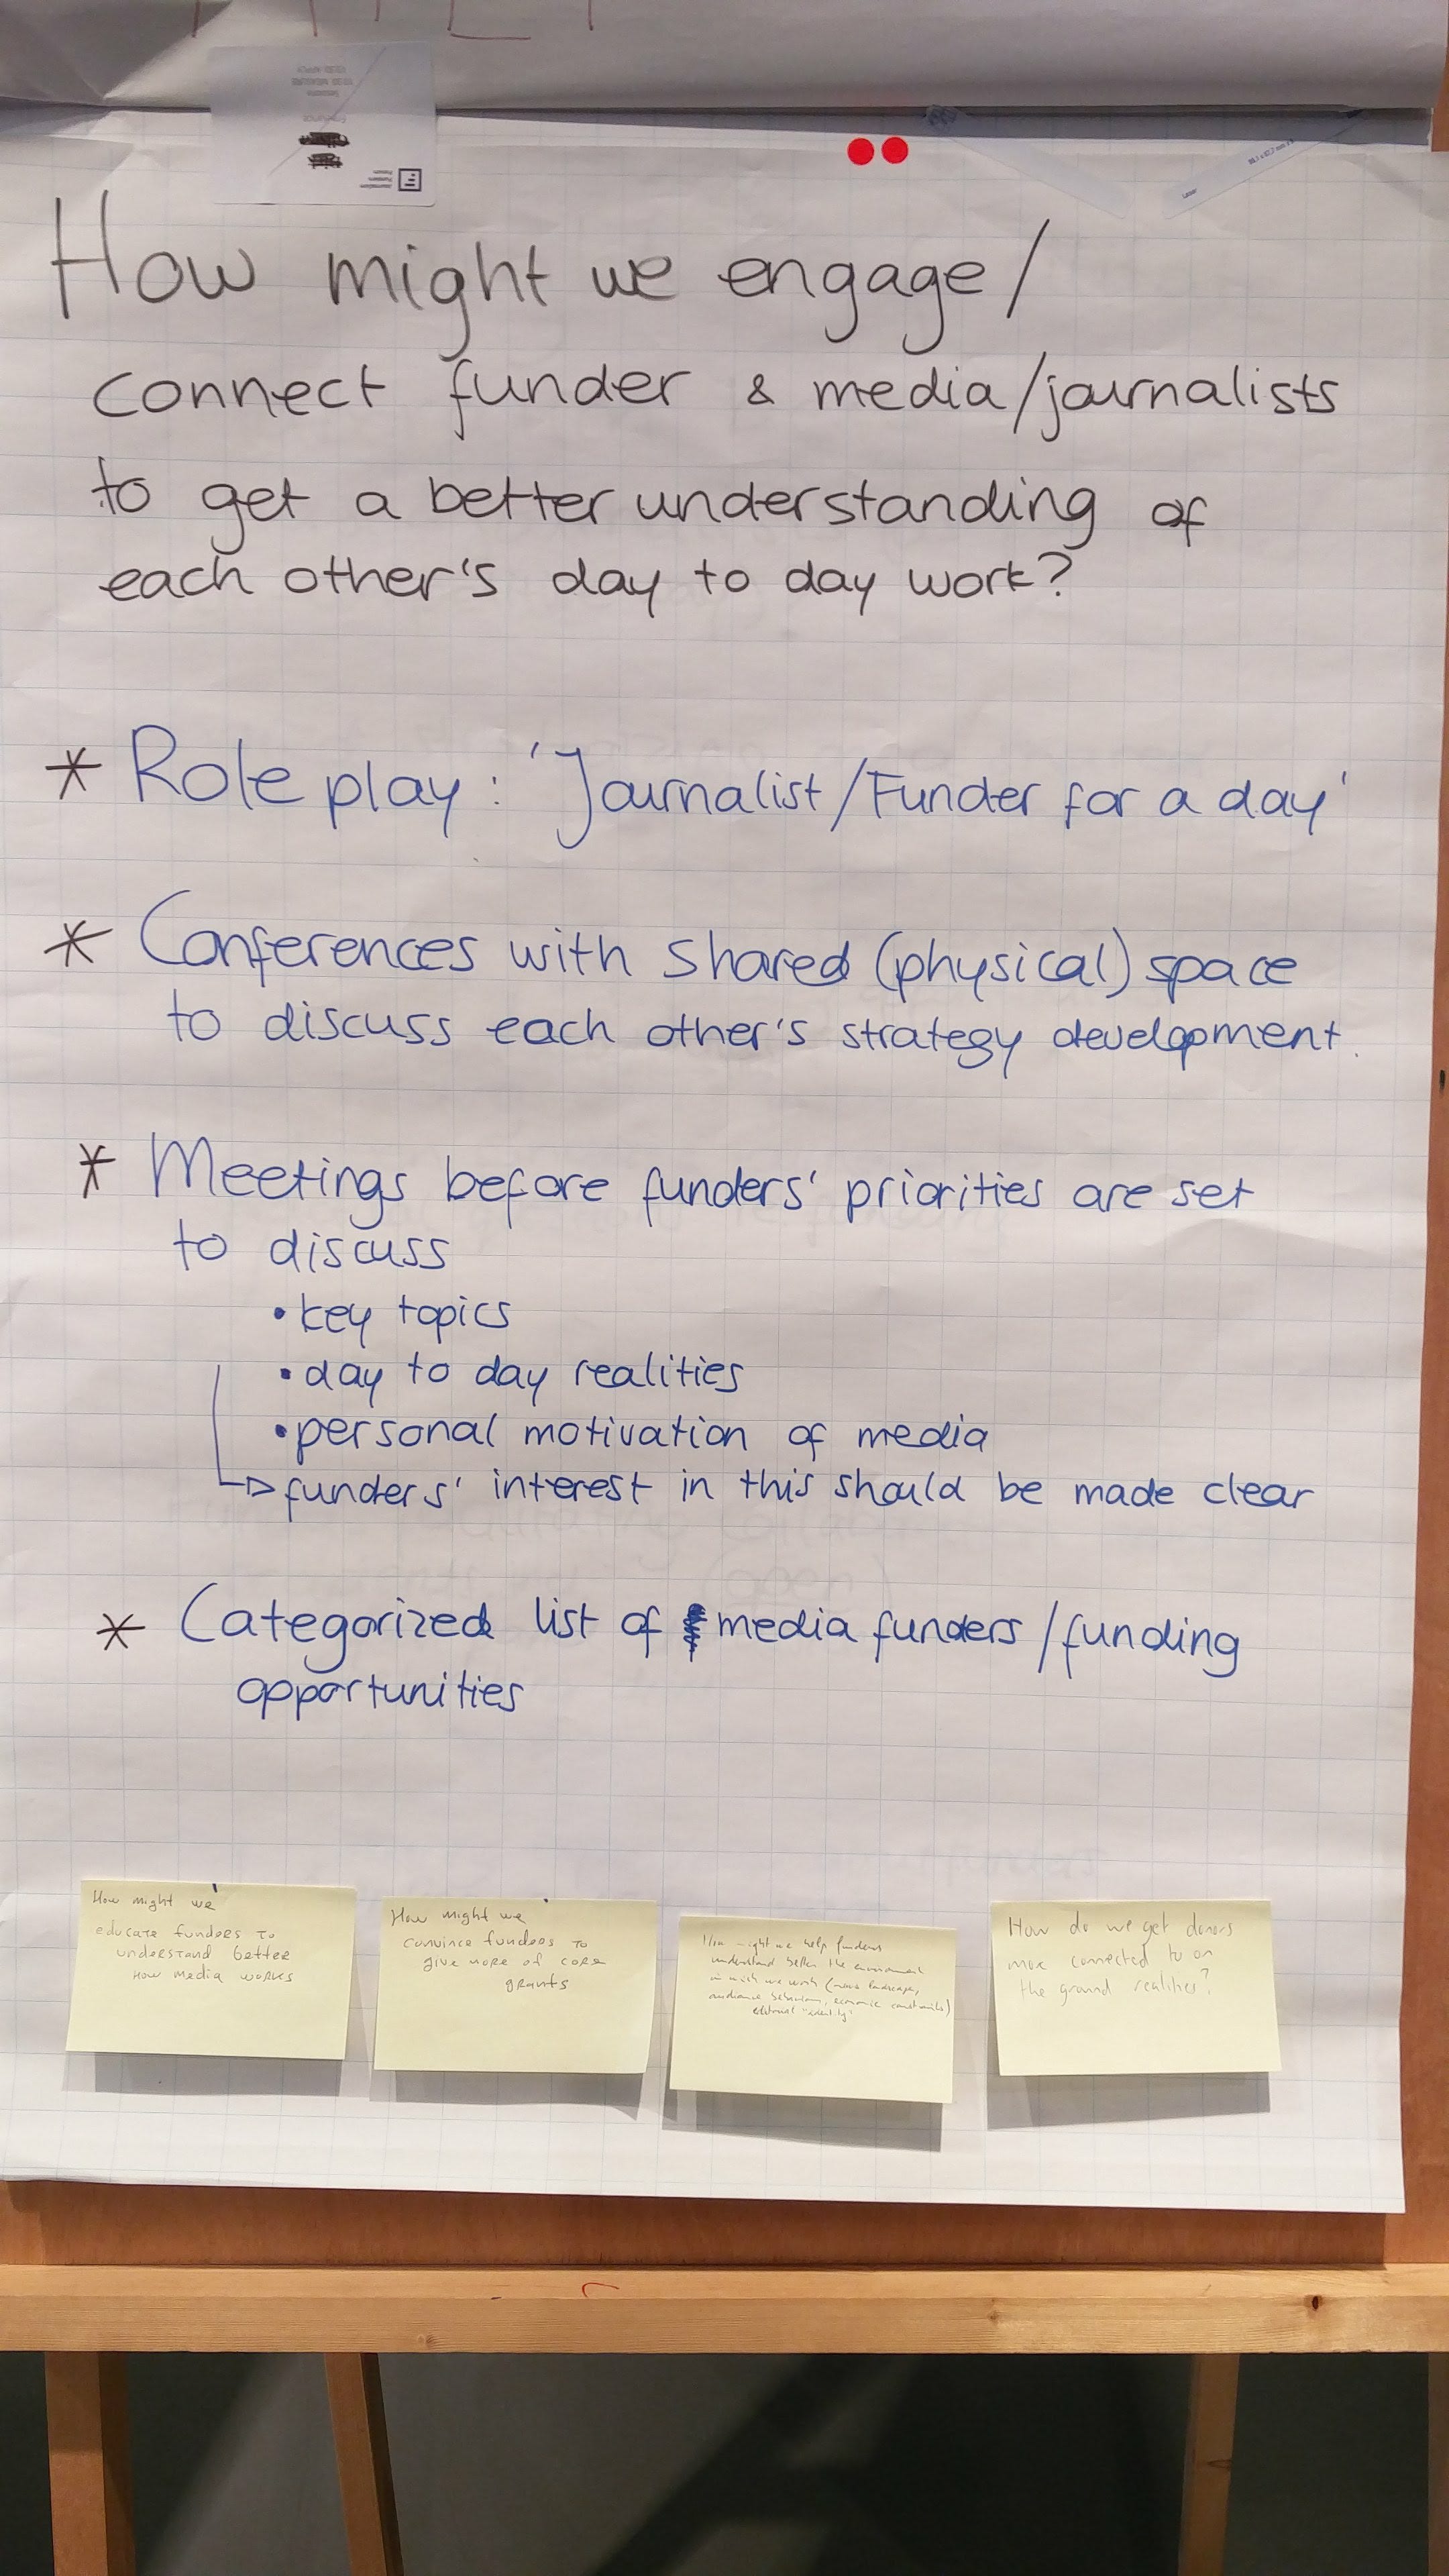 How might we engage/
connect funder & media/journalists
to get a better understanding of
each other's day to day work?
* Role play: 'Journalist/Funder for a day'
* Conferences with shared (physical) space
to discuss each other's strategy development.
* Meetings before funders' priorities are set
to discuss
• key topics
• day to day realities
• personal motivation of media
→ funders' interest in this should be made clear
* Categorized list of media funders/funding
opportunities
How might we
educate funders to
understand better
how media works
How might we
convince funders to
give more of core
grants
How might we help funders
understand better the environment
in which we work (news landscape,
audience behaviour, economic constraints)
editorial "identity"
How do we get donors
more connected to on
the ground realities?